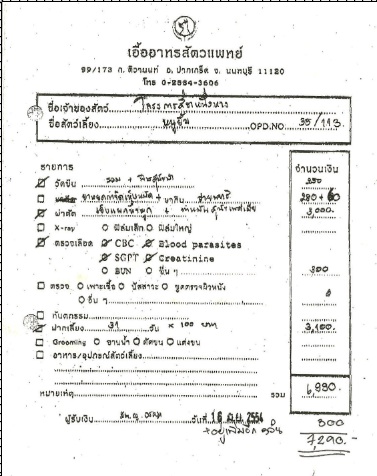 เอื้ออาทรสัตวแพทย์
99/173 ถ. ติวานนท์ อ. ปากเกร็ด จ. นนทบุรี 11120
โทร 0-2584-3606
ชื่อเจ้าของสัตว์
ชื่อสัตว์เลี้ยง OPD.NO. 35/113
รายการ จำนวนเงิน
วัคซีน รวม + 250
280+60
ผ่าตัด 3,000
X-ray ฟิล์มเล็ก ฟิล์มใหญ่
ตรวจเลือด CBC Blood parasites
SGPT Creatinine
BUN อื่น ๆ 300
ตรวจ เพาะเชื้อ ปัสสาวะ ขูดตรวจผิวหนัง
อื่น ๆ
ทันตกรรม
ฝากเลี้ยง 31 วัน x 100 บาท 3,100.
Grooming อาบน้ำ ตัดขน แต่งขน
อาหาร/อุปกรณ์สัตว์เลี้ยง
หมายเหตุ รวม 6,990.-
ผู้รับเงิน วันที่ 16 2554
300
7,290.-